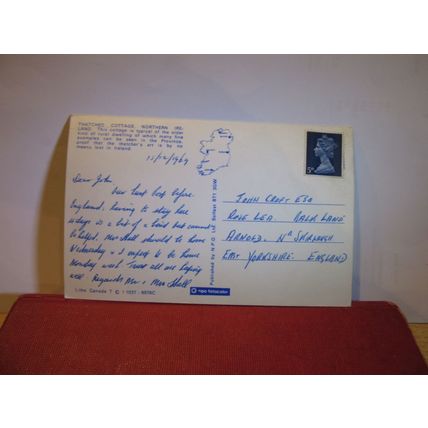 THATCHED COTTAGE, NORTHERN IRE-
LAND. This cottage is typical of the older
kind of rural dwelling of which many fine
examples can be seen in the Province,
proof that the thatcher's art is by no
means lost in Ireland
15/12/1969
Dear John,
Our last best before
England, having to stay here
4 days is a bit of a bind but cannot
be helped. Mrs Hall should be home
Wednesday - I expect to be home
Monday next. Trust all are keeping
well Regards Mr & Mrs Hall
Published by N.P.O. Ltd. Belfast BT7 3GW
5D
JOHN CROFT ESQ
ROSE LEA LANE
ARNOLD. Nr
EAST YORKSHIRE. ENGLAND
Canada
npo fotocolor